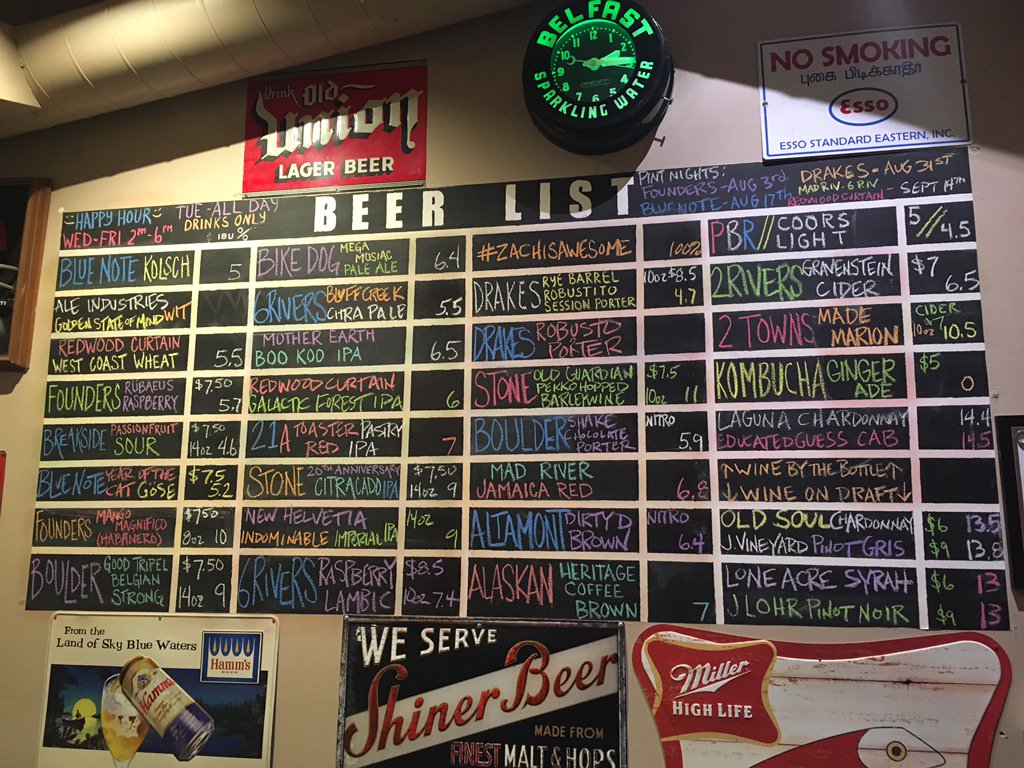 BELFAST
SPARKLING WATER
Drink Old
Union
LAGER BEER
NO SMOKING
புகை பிடிக்காதீர்
Esso
ESSO STANDARD EASTERN, INC.
HAPPY HOUR
WED-FRI 2PM-6PM
TUE-ALL DAY
DRINKS ONLY
BEER LIST
PINT NIGHTS:
FOUNDERS-AUG 3rd.
BLUE NOTE-AUG 17th
DRAKES-AUG 31ST
MADRIV. 6 RIV
REDWOOD CURTAIN - SEPT 14th
BLUE NOTE KOLSCH 5
ALE INDUSTRIES
GOLDEN STATE OF MIND WIT
REDWOOD CURTAIN
WEST COAST WHEAT 5.5
FOUNDERS RUBAEUS RASPBERRY $7.50 5.7
BREAKSIDE PASSIONFRUIT SOUR $7.50 14oz 4.6
BLUE NOTE YEAR OF THE CAT GOSE $7.5 5.2
FOUNDERS MANGO MAGNIFICO (HABANERO) $7.50 8oz 10
BOULDER GOOD TRIPEL BELGIAN STRONG $7.50 14oz 9
BIKE DOG MEGA MOSIAC PALE ALE 6.4
6RIVERS BLUFF CREEK CITRA PALE 5.5
MOTHER EARTH
BOO KOO IPA 6.5
REDWOOD CURTAIN
GALACTIC FOREST IPA 6
21A TOASTER PASTRY RED IPA 7
STONE 20TH ANNIVERSARY CITRACADO IPA $7.50 14oz 9
NEW HELVETIA
INDOMINABLE IMPERIAL IPA 14oz 9
6RIVERS RASPBERRY LAMBIC $8.5 10oz 7.4
#ZACHISAWESOME 10OZ
DRAKES RYE BARREL ROBUSTITO SESSION PORTER 10oz $8.5 4.7
DRAKES ROBUSTO PORTER
STONE OLD GUARDIAN PEKKO HOPPED BARLEYWINE $7.5 10oz 11
BOULDER SHAKE CHOCOLATE PORTER NITRO 5.9
MAD RIVER
JAMAICA RED 6.8
ALTAMONT DIRTY D BROWN NITRO 6.4
ALASKAN HERITAGE COFFEE BROWN 7
PBR // COORS LIGHT 5 // 4.5
2RIVERS GRAVENSTEIN CIDER $7 6.5
2 TOWNS MADE MARION CIDER 10oz $7 10.5
KOMBUCHA GINGER ADE $5 0
LAGUNA CHARDONNAY 14.4
EDUCATED GUESS CAB 14.5
↑WINE BY THE BOTTLE↑
↓WINE ON DRAFT↓
OLD SOUL CHARDONNAY $6 13.5
J. VINEYARD PINOT GRIS $9 13.8
LONE ACRE SYRAH $6 13
J LOHR PINOT NOIR $9 13
From the
Land of Sky Blue Waters
Hamm's
BEER
Hamm's
WE SERVE
Shiner Beer
MADE FROM
FINEST MALT & HOPS
Miller
HIGH LIFE